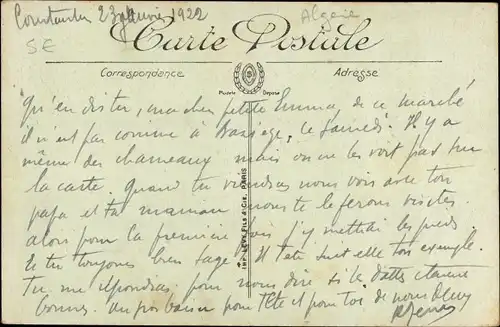 Constantine 23 Janvier 1922
Algérie
SE
Carte Postale
Correspondance
Adresse
Modèle Déposé
IMP. LEVY FILS & CIE. PARIS
Qu'en dis-tu, ma chère petite Emma, de ce marché
il n'est pas comme à Bessèges, le samedi. Il y a
même des chameaux mais on ne les voit pas sur
la carte. Quand tu viendras nous voir avec ton
papa et ta maman nous te le ferons visiter
alors pour la première fois j'y mettrai les pieds
Es tu toujours bien sage, et Tété suit elle ton exemple.
Tu me répondras pour nous dire si les dattes étaient
bonnes. Un gros baiser pour Tété et pour toi de nous deux